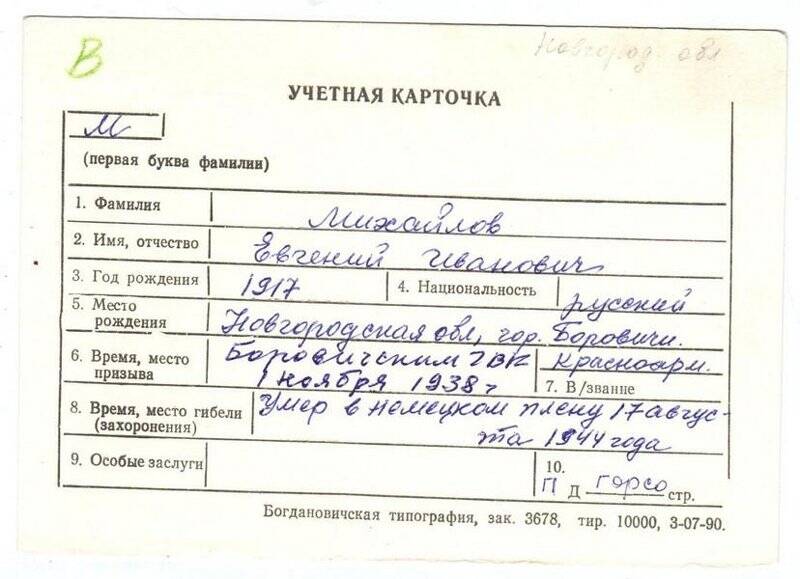 В
Новгород. обл
УЧЕТНАЯ КАРТОЧКА
М
(первая буква фамилии)
1. Фамилия Михайлов
2. Имя, отчество Евгений Иванович
3. Год рождения 1917 4. Национальность русский
5. Место
рождения Новгородская обл, гор. Боровичи.
6. Время, место Боровичским ГВК красноарм.
призыва 1 ноября 1938 г 7. В/звание
8. Время, место гибели Умер в немецком плену 17 авгус-
(захоронения) та 1944 года
9. Особые заслуги 10.
П Д горсо стр.
Богдановичская типография, зак. 3678, тир. 10000, 3-07-90.